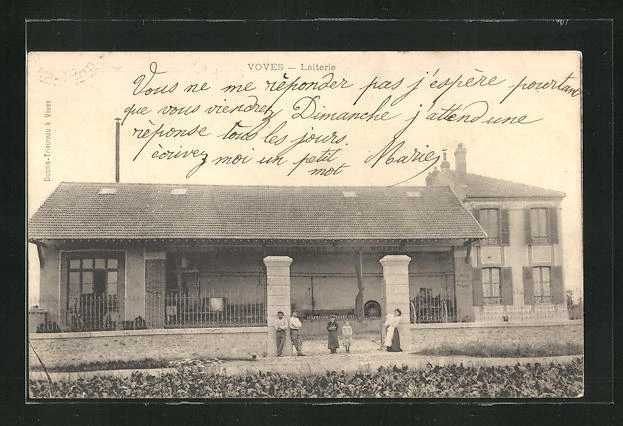 VOVES — Laiterie
Vous ne me répondez pas j'espère pourtant
que vous viendrez Dimanche j'attend une
réponse tous les jours.
écrivez moi un petit
mot Marie
Dubois-Trisunau à Voves